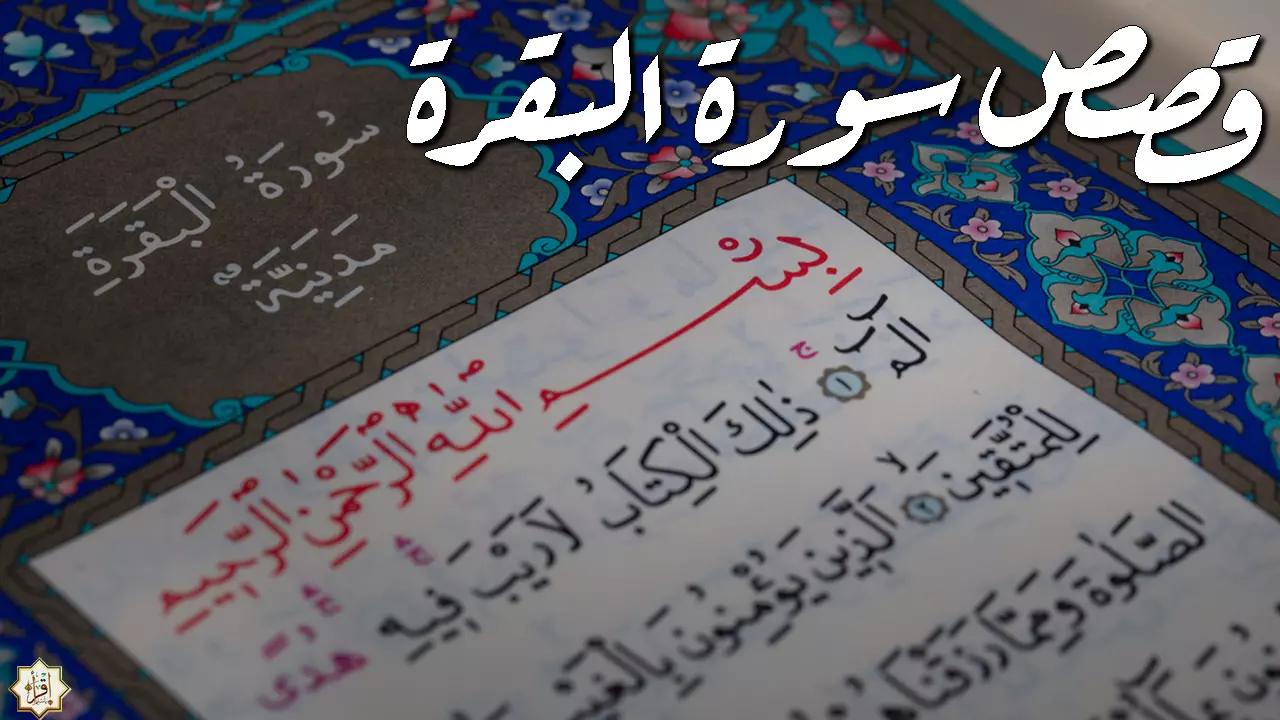 قصص سورة البقرة
سُورَةُ الْبَقَرَةِ
مَدِينَيَّةٌ
بِسْمِ اللّٰهِ الرَّحْمٰنِ الرَّحِيمِ
الٓمٓ ۚ ١ ذٰلِكَ الْكِتَابُ لَا رَيْبَ فِيهِ هُدًى
لِلْمُتَّقِينَ ٢ اَلَّذِينَ يُؤْمِنُونَ بِالْغَيْبِ
الصَّلٰوةَ وَمِمَّا رَزَقْنَاهُمْ